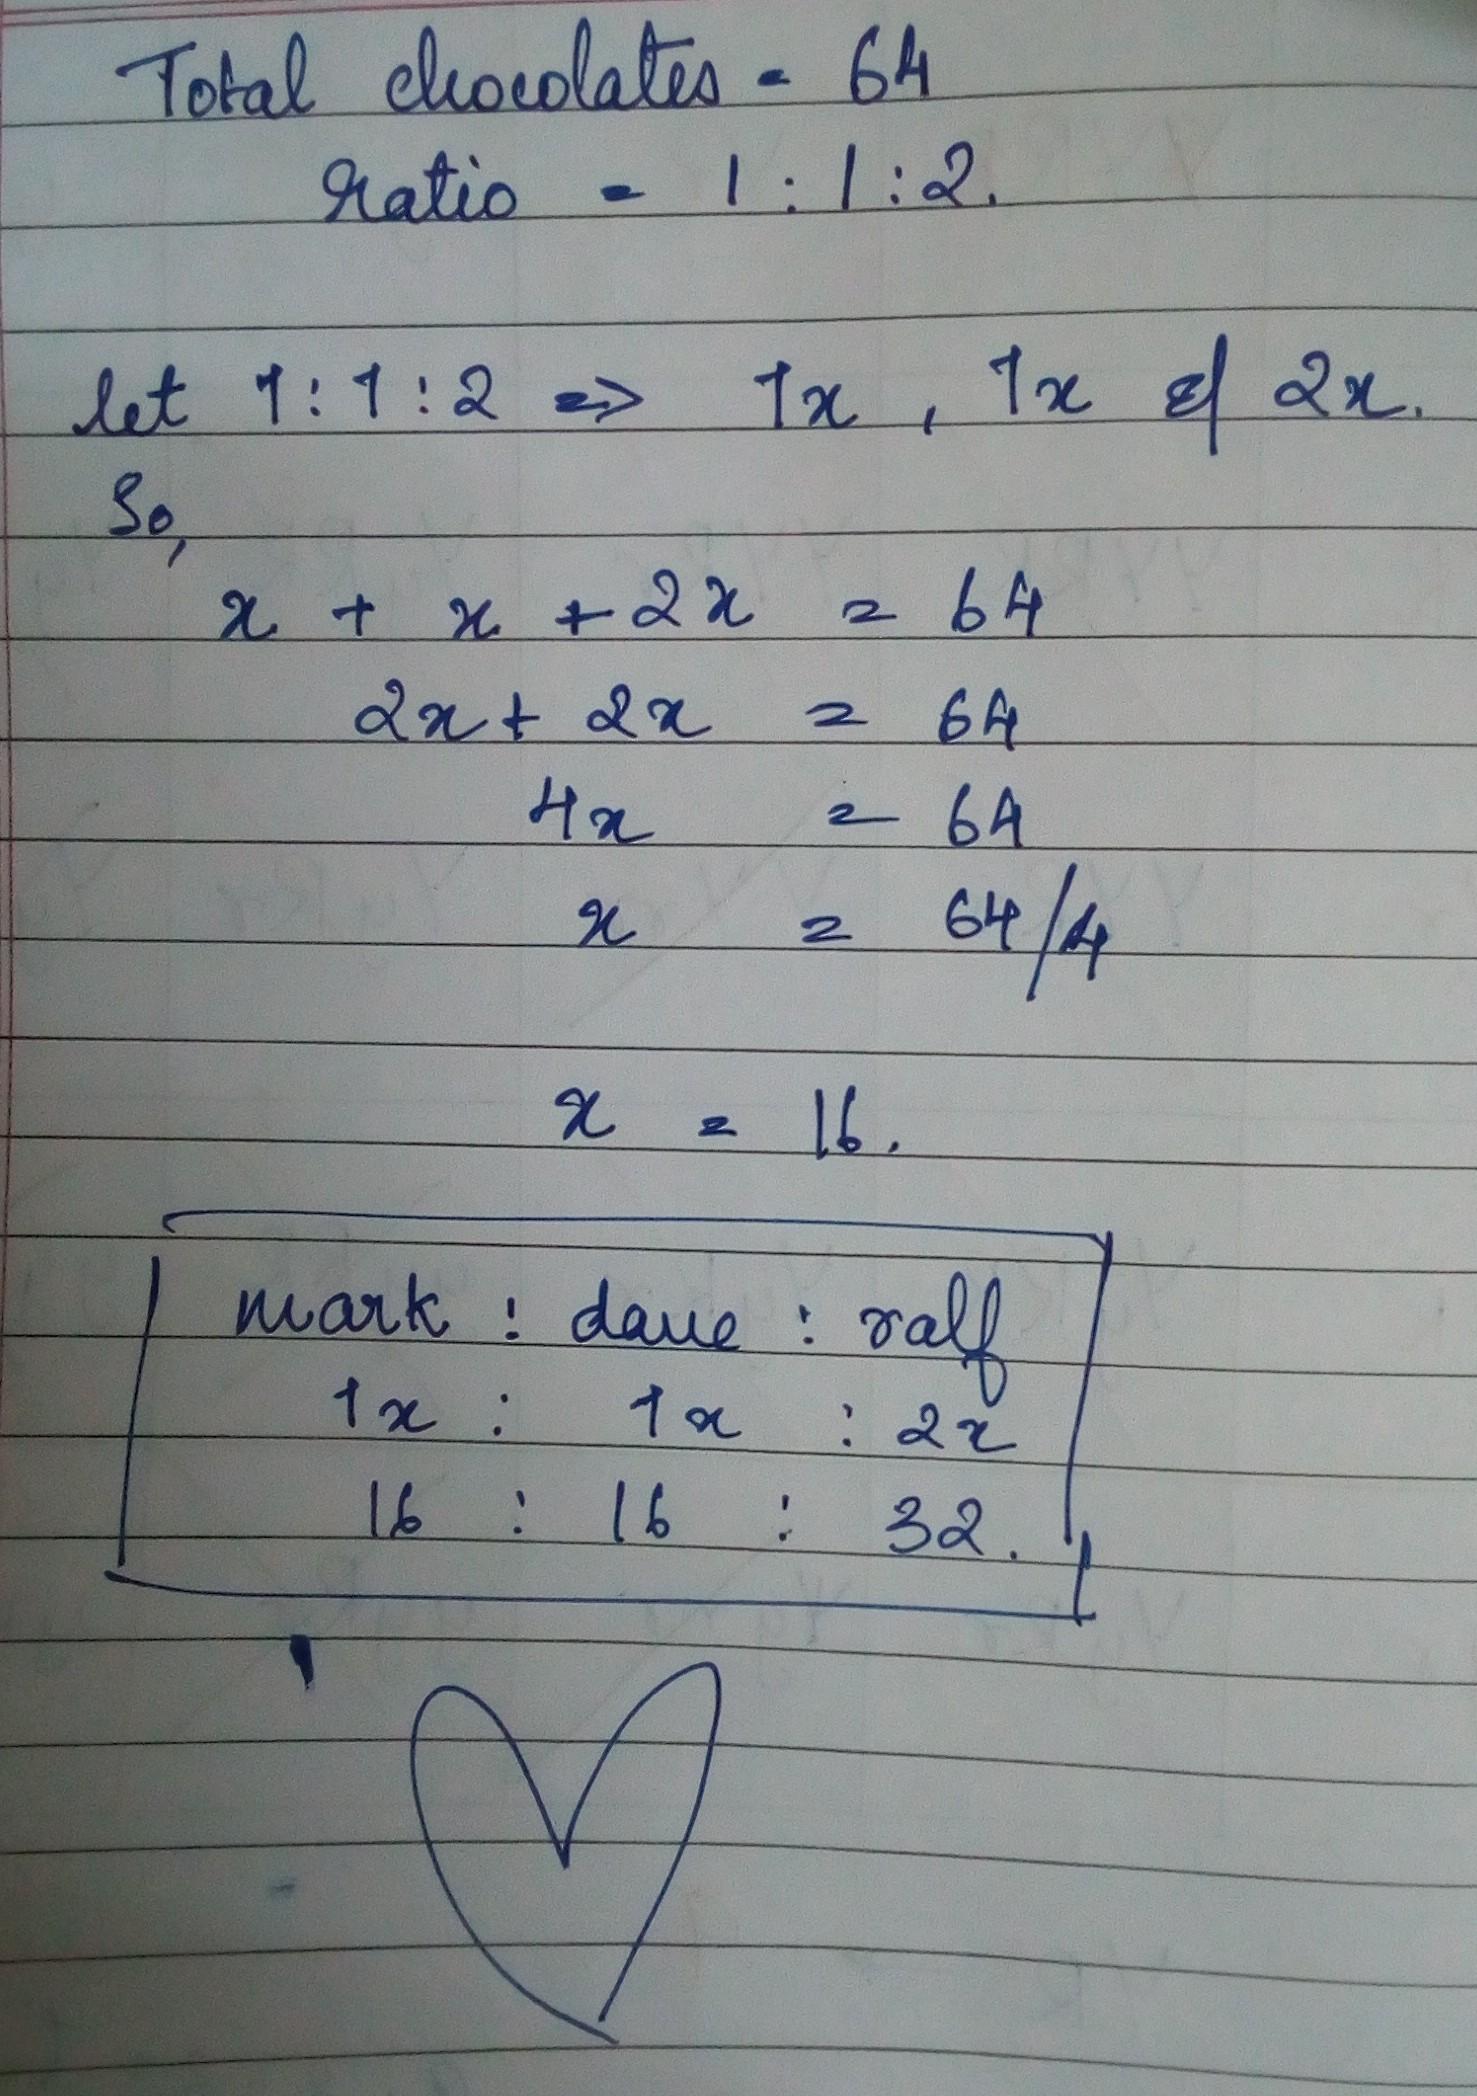 Total chocolates = 64
ratio = 1 : 1 : 2.
let 1 : 1 : 2 => 1x , 1x & 2x.
So,
x + x + 2x = 64
2x + 2x = 64
4x = 64
x = 64/4
x = 16.
mark : dave : ralf
1x : 1x : 2x
16 : 16 : 32.